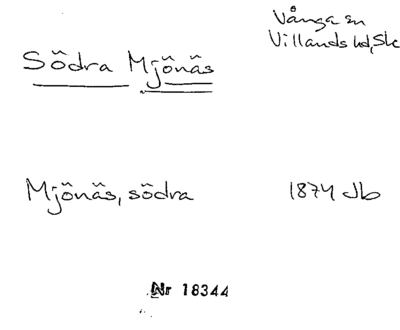 Vånga sn
Villands hd, Sk
Södra Mjönäs
Mjönäs, södra 1874 Jb
Nr 18344